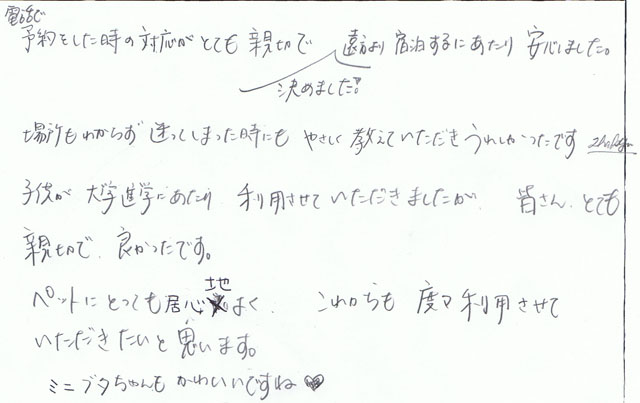 電話で
予約をした時の対応がとても親切で 遠方より宿泊するにあたり安心しました。
決めました!!
場所もわからず迷ってしまった時にもやさしく教えていただきうれしかったです
子供が大学進学にあたり利用させていただきましたが、皆さん、とても
親切で、良かったです。
ペットにとっても居心地よく、これからも度々利用させて
いただきたいと思います。
ミニブタちゃんもかわいいですね♥